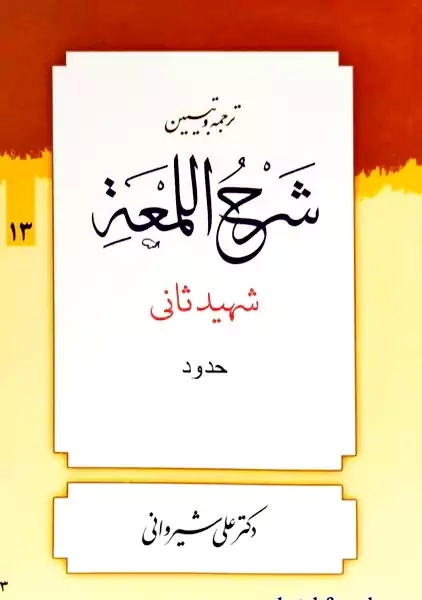 ترجمه و تبیین
شَرحُ اللمعَةِ
۱۳
شهید ثانی
حدود
دکتر علی شیروانی
۳